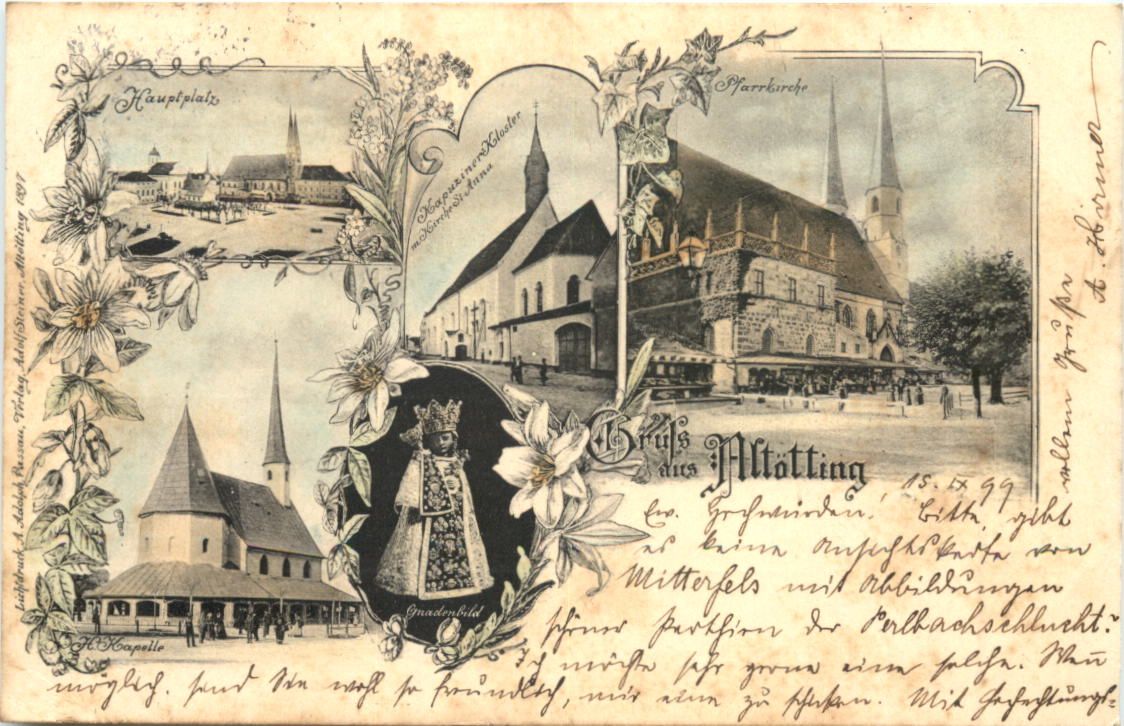 Hauptplatz
Kapuziner Kloster
m. Kirche St. Anna
Pfarrkirche
Lichtdruck A. Adolph, Passau, Verlag Adolf Steiner, Altötting 1897
H. Kapelle
Gnadenbild
Gruß
aus Altötting
15. IX 99
Ew. Hochwürden! Bitte, gibt
es keine Ansichtskarte von
Mitterfels mit Abbildungen
schöner Parthien der Perlbachschlucht?
Ich möchte sehr gerne eine solche. Wenn
möglich, sind Sie wohl so freundlich, mir eine zu schicken. Mit
vollem Gruße
A. Hirmer